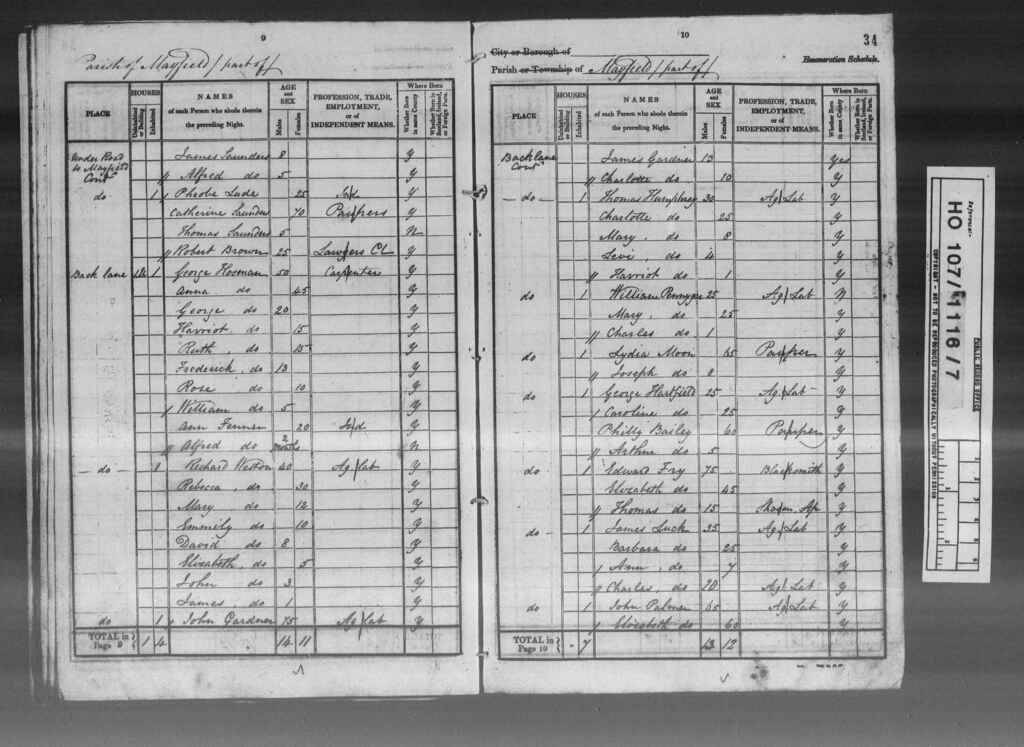 9
Parish of Mayfield (part of)
PLACE
HOUSES
Uninhabited or Building
Inhabited
NAMES
of each Person who abode therein
the preceding Night.
AGE and SEX
Males
Females
PROFESSION, TRADE,
EMPLOYMENT,
or of
INDEPENDENT MEANS.
Where Born
Whether Born in same County
Whether Born in Scotland, Ireland, or Foreign Parts.
Under Road James Saunders 8 y
to Mayfield
Cont Alfred do 5 y
do 1 Phoebe Lade 25 y
Catherine Saunders 70 Paupers y
Thomas Saunders 5 n
Robert Brown 25 Lawyers Cl y
Back lane 1 George Hosman 50 Carpenters y
Anna do 45 y
George do 20 y
Harriot do 15 y
Ruth do 15 y
Frederick do 13 y
Rose do 10 y
William do 5 y
Ann Fenner 20 y
Alfred do 2 months n
do 1 Richard Weston 40 Ag Lab y
Rebecca do 30 y
Mary do 12 y
Emmily do 10 y
David do 8 y
Elizabeth do 5 y
John do 3 y
James do 1 y
do 1 John Gardner 75 Ag Lab y
TOTAL in Page 9 1 4 14 11
10
34
City or Borough of
Enumeration Schedule.
Parish or Township of Mayfield (part of)
PLACE
HOUSES
Uninhabited or Building
Inhabited
NAMES
of each Person who abode therein
the preceding Night.
AGE and SEX
Males
Females
PROFESSION, TRADE,
EMPLOYMENT,
or of
INDEPENDENT MEANS.
Where Born
Whether Born in same County
Whether Born in Scotland, Ireland, or Foreign Parts.
Back lane James Gardner 13 yes
Cont Charlotte do 10 y
do 1 Thomas Humphrey 30 Ag Lab y
Charlotte do 25 y
Mary do 8 y
Levi do 4 y
Harriot do 1 y
do 1 William 25 Ag Lab n
Mary do 25 y
Charles do 1 y
do 1 Lydia Moon 65 Pauper y
Joseph do 8 y
do 1 George Hartfield 25 Ag Lab y
Caroline do 25 y
Philly Bailey 60 Pauper y
Arthur do 5 y
do 1 Edward Fry 75 Blacksmith y
Elizabeth do 45 y
Thomas do 15 y
do 1 James Luck 35 Ag Lab y
Barbara do 25 y
Ann do 7 y
Charles do 20 Ag Lab y
do 1 John Palmer 65 Ag Lab y
Elizabeth do 60 y
TOTAL in Page 10 7 13 12
PUBLIC RECORD OFFICE
Reference:-
HO 107/1116/7
COPYRIGHT - NOT TO BE REPRODUCED PHOTOGRAPHICALLY WITHOUT PERMISSION